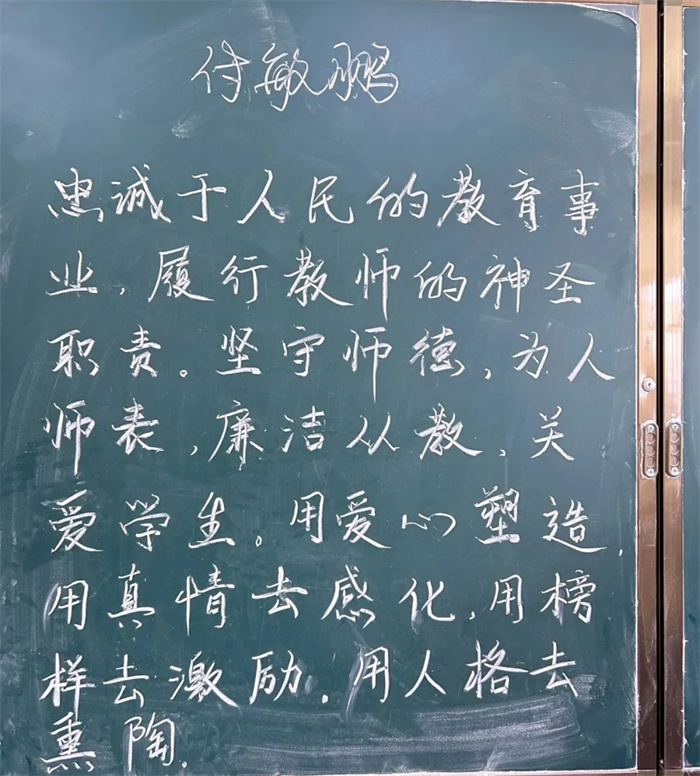 付敏鹏
忠诚于人民的教育事
业,履行教师的神圣
职责。坚守师德、为人
师表,廉洁从教、关
爱学生。用爱心塑造,
用真情去感化,用榜
样去激励,用人格去
熏陶.